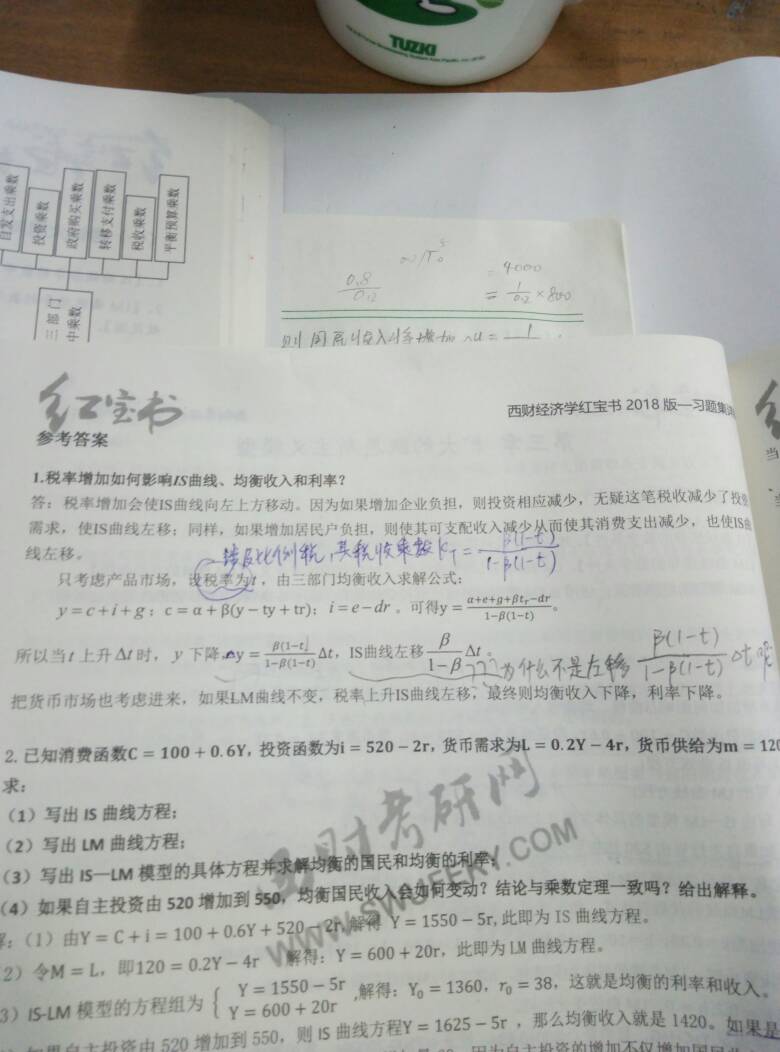 TUZKI
自发支出乘数
投资乘数
政府购买乘数
转移支付乘数
税收乘数
平衡预算乘数
三部门
中乘数
0.8
= 4000
= 1/0.2 × 800
则国民收入将增加
红宝书
西财经济学红宝书 2018 版—习题集
参考答案
1.税率增加如何影响IS曲线、均衡收入和利率？
答：税率增加会使IS曲线向左上方移动。因为如果增加企业负担，则投资相应减少，无疑这笔税收减少了投资
需求，使IS曲线左移；同样，如果增加居民户负担，则使其可支配收入减少从而使其消费支出减少，也使IS曲
线左移。
涉及比例税，其税收乘数 K_T = β(1-t)/1-β(1-t)
只考虑产品市场，设税率为t，由三部门均衡收入求解公式：
y = c + i + g；c = α + β(y − ty + tr)；i = e − dr 。可得y = α+e+g+βt_r−dr/1−β(1−t)。
所以当t 上升Δt时，y 下降Δy = β(1−t)/1−β(1−t) Δt，IS曲线左移 β/1−β Δt 。
??? 为什么不是左移 β(1-t)/1-β(1-t) Δt 呢
把货币市场也考虑进来，如果LM曲线不变，税率上升IS曲线左移，最终则均衡收入下降，利率下降。
2. 已知消费函数C = 100 + 0.6Y，投资函数为i = 520 − 2r，货币需求为L = 0.2Y − 4r，货币供给为m = 120
求：
（1）写出 IS 曲线方程；
（2）写出 LM 曲线方程；
（3）写出 IS—LM 模型的具体方程并求解均衡的国民和均衡的利率；
（4）如果自主投资由 520 增加到 550，均衡国民收入会如何变动？结论与乘数定理一致吗？给出解释。
西财考研网
WWW.SWUFEKY.COM
解：（1）由Y = C + i = 100 + 0.6Y + 520 − 2r,解得 Y = 1550 − 5r,此即为 IS 曲线方程。
2）令M = L，即120 = 0.2Y − 4r 解得：Y = 600 + 20r，此即为 LM 曲线方程。
3）IS-LM 模型的方程组为 { Y = 1550 − 5r
Y = 600 + 20r ,解得：Y₀ = 1360，r₀ = 38，这就是均衡的利率和收入。
如果自主投资由 520 增加到 550，则 IS 曲线方程Y = 1625 − 5r ，那么均衡收入就是 1420。如果是
因为自主投资的增加不仅增加国民